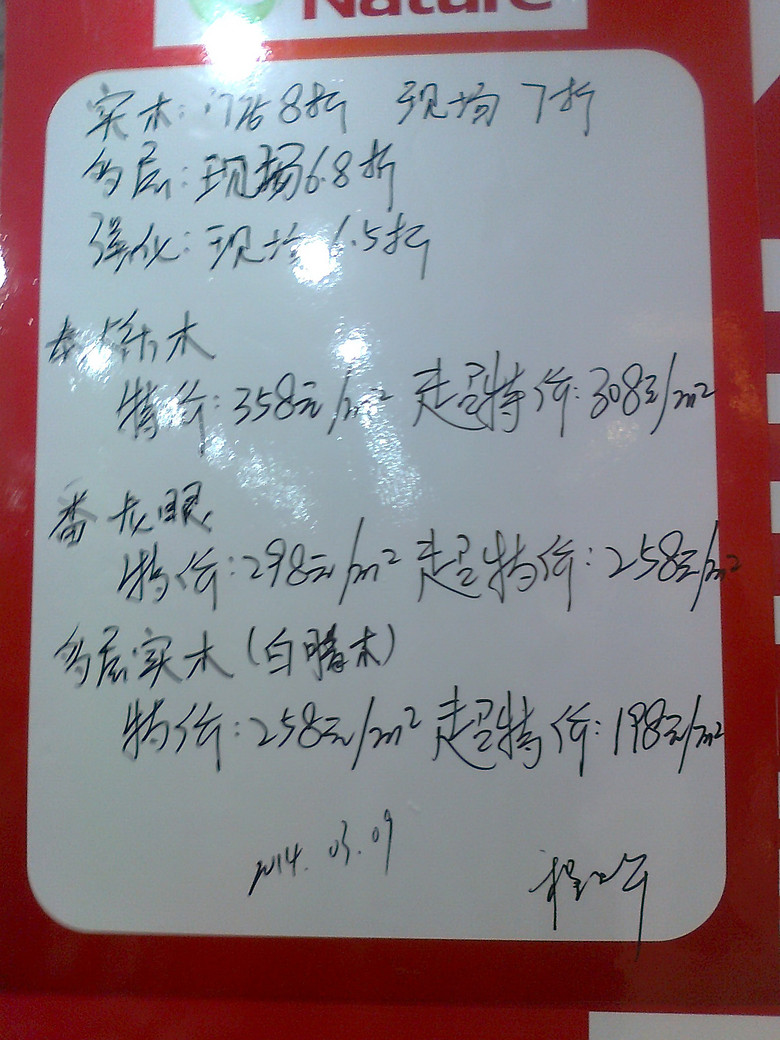 Nature
实木: 门店8折 现场 7折
多层: 现场6.8折
强化: 现场6.5折
木
特价: 358元/m² 超特价: 308元/m²
番龙眼
特价: 298元/m² 超特价: 258元/m²
多层实木(白腊木)
特价: 258元/m² 超特价: 198元/m²
2014.03.09